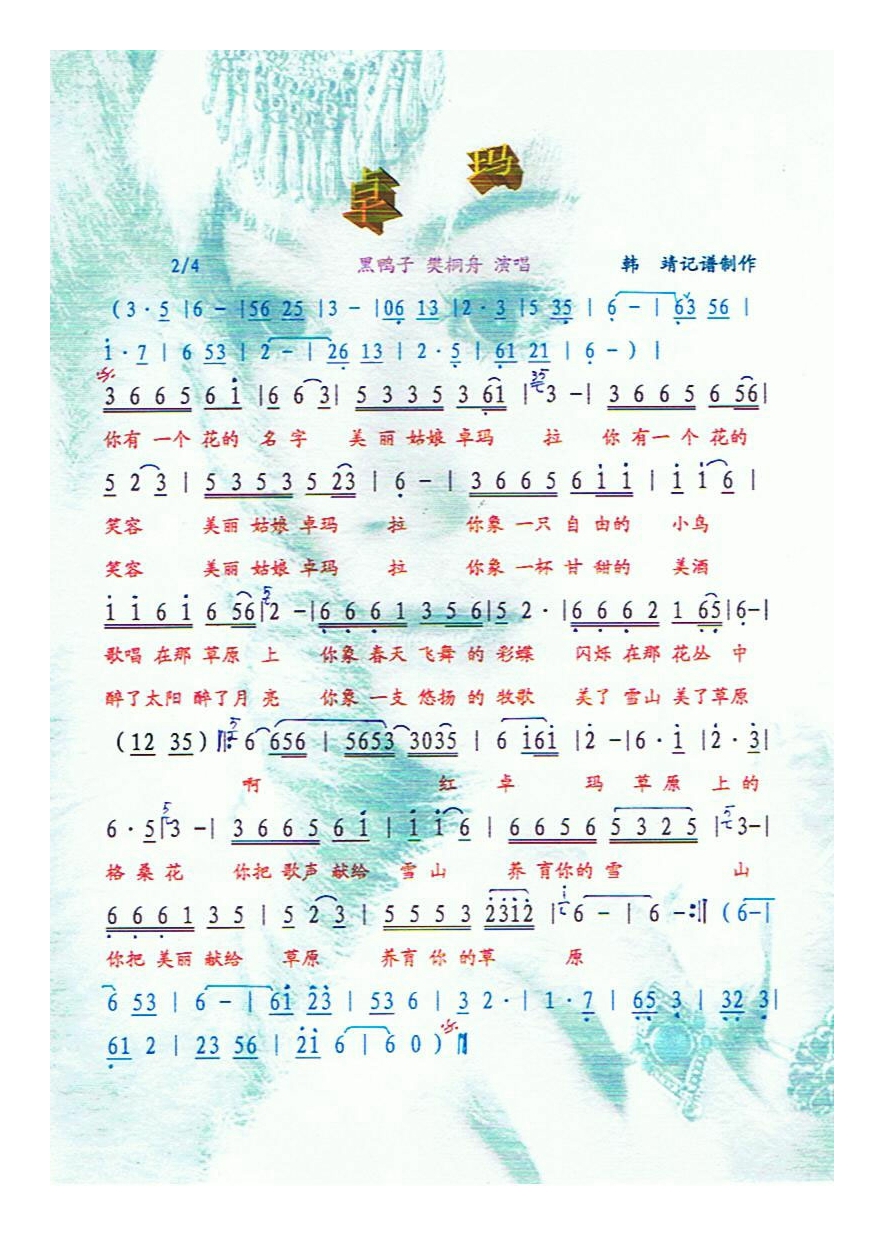 卓 玛
2/4 黑鸭子 樊桐舟 演唱 韩 靖记谱制作
(3 · 5 |6 – |56 25 |3 – |06 13 |2 · 3 |5 35 | 6 – | 63 56 |
i · 7 | 6 53 | 2 – | 26 13 | 2 · 5 | 61 21 | 6 –) |
3 6 6 5 6 i |6 6 3| 5 3 3 5 3 61 | 35 3 –| 3 6 6 5 6 56|
你有 一个 花的 名 字 美 丽 姑娘 卓玛 拉 你 有一 个 花的
5 2 3 | 5 3 5 3 5 23 | 6 – | 3 6 6 5 6 i i | i i 6 |
笑容 美丽 姑娘 卓玛 拉 你象 一只 自 由的 小鸟
笑容 美丽 姑娘 卓玛 拉 你象 一杯 甘 甜的 美酒
i i 6 i 6 56|5 2 –|6 6 6 1 3 5 6|5 2 · |6 6 6 2 1 65|6–|
歌唱 在那 草原 上 你象 春天 飞舞 的 彩蝶 闪烁 在那 花丛 中
醉了太阳 醉了月 亮 你象 一支 悠扬 的 牧歌 美了 雪山 美了草原
(12 35)‖: 5 6 656 | 5653 3035 | 6 i6i |2 –|6 · i |2 · 3|
啊 红 卓 玛 草 原 上 的
6 · 5|5 3 –| 3 6 6 5 6 i | i i 6 | 6 6 5 6 5 3 2 5 |5 3–|
格 桑 花 你把 歌声 献给 雪 山 养 育你的 雪 山
6 6 6 1 3 5 | 5 2 3 | 5 5 5 3 2312 |i 6 – | 6 –:‖ (6–|
你把 美丽 献给 草原 养育 你 的草 原
6 53 | 6 – | 6i 23 | 53 6 | 3 2 · | 1 · 7 | 65 3 | 32 3|
61 2 | 23 56 | 2i 6 | 6 0 ) ‖